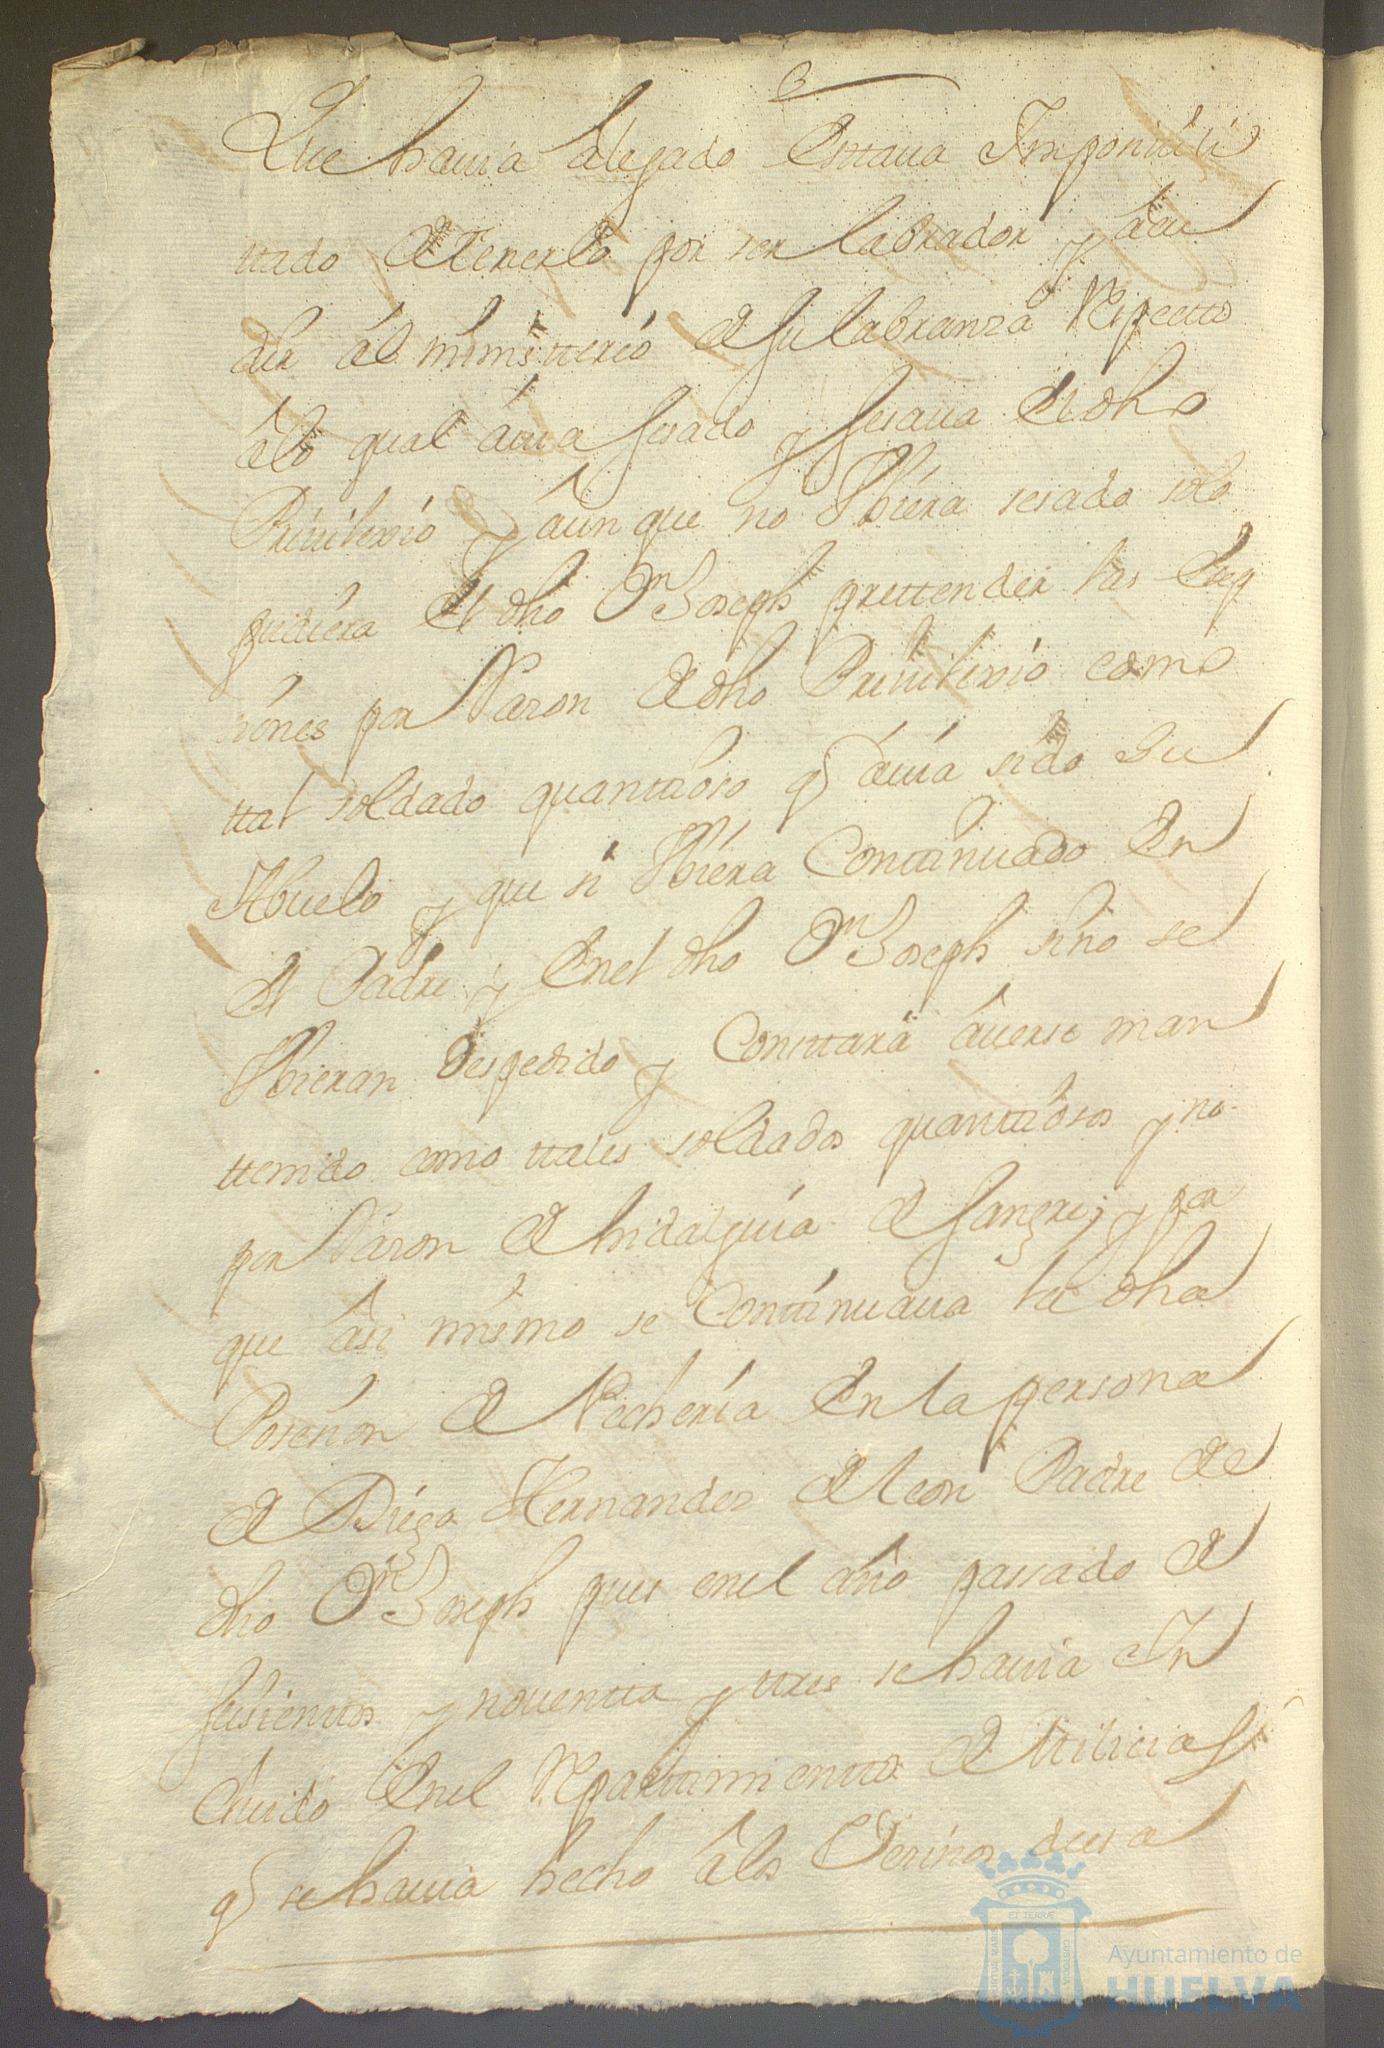 Que hauia alegado Esttaua Imposiuili
ttado de Tenerlo por ser labrador y acu
dir al minístterio de su labranza Respectto
álo qual áuia sesado y sesaua el dho
Priuilexio y áunque no Vbiera sesado solo
pudiera el dho Dn Joseph prettender las Exep
ziónes por Razon de dho Priuilexio como
ttal soldado quanttioso q áuia sido su
Abuelo y que si Vbiera Conttinuado En
el Padre y Enel dho Dn Joseph sino se
Vbieran despedido y Consttará áuerse man
ttenido como ttales soldados quanttiósos y no
por Razon de hidalguía de sangre; y por
que ási mismo se Conttinuaua la dha
Poseción de Pechería En la persona
de Diego Hernandez de leon Padre de
dho Dn Joseph pues enel año passado de
seisienttos y nouentta y ttres se hauia In
cluido Enel Reparttimientto de Milicias
q se hauia hecho álos Vezinos desa
Ayuntamiento de
HUELVA